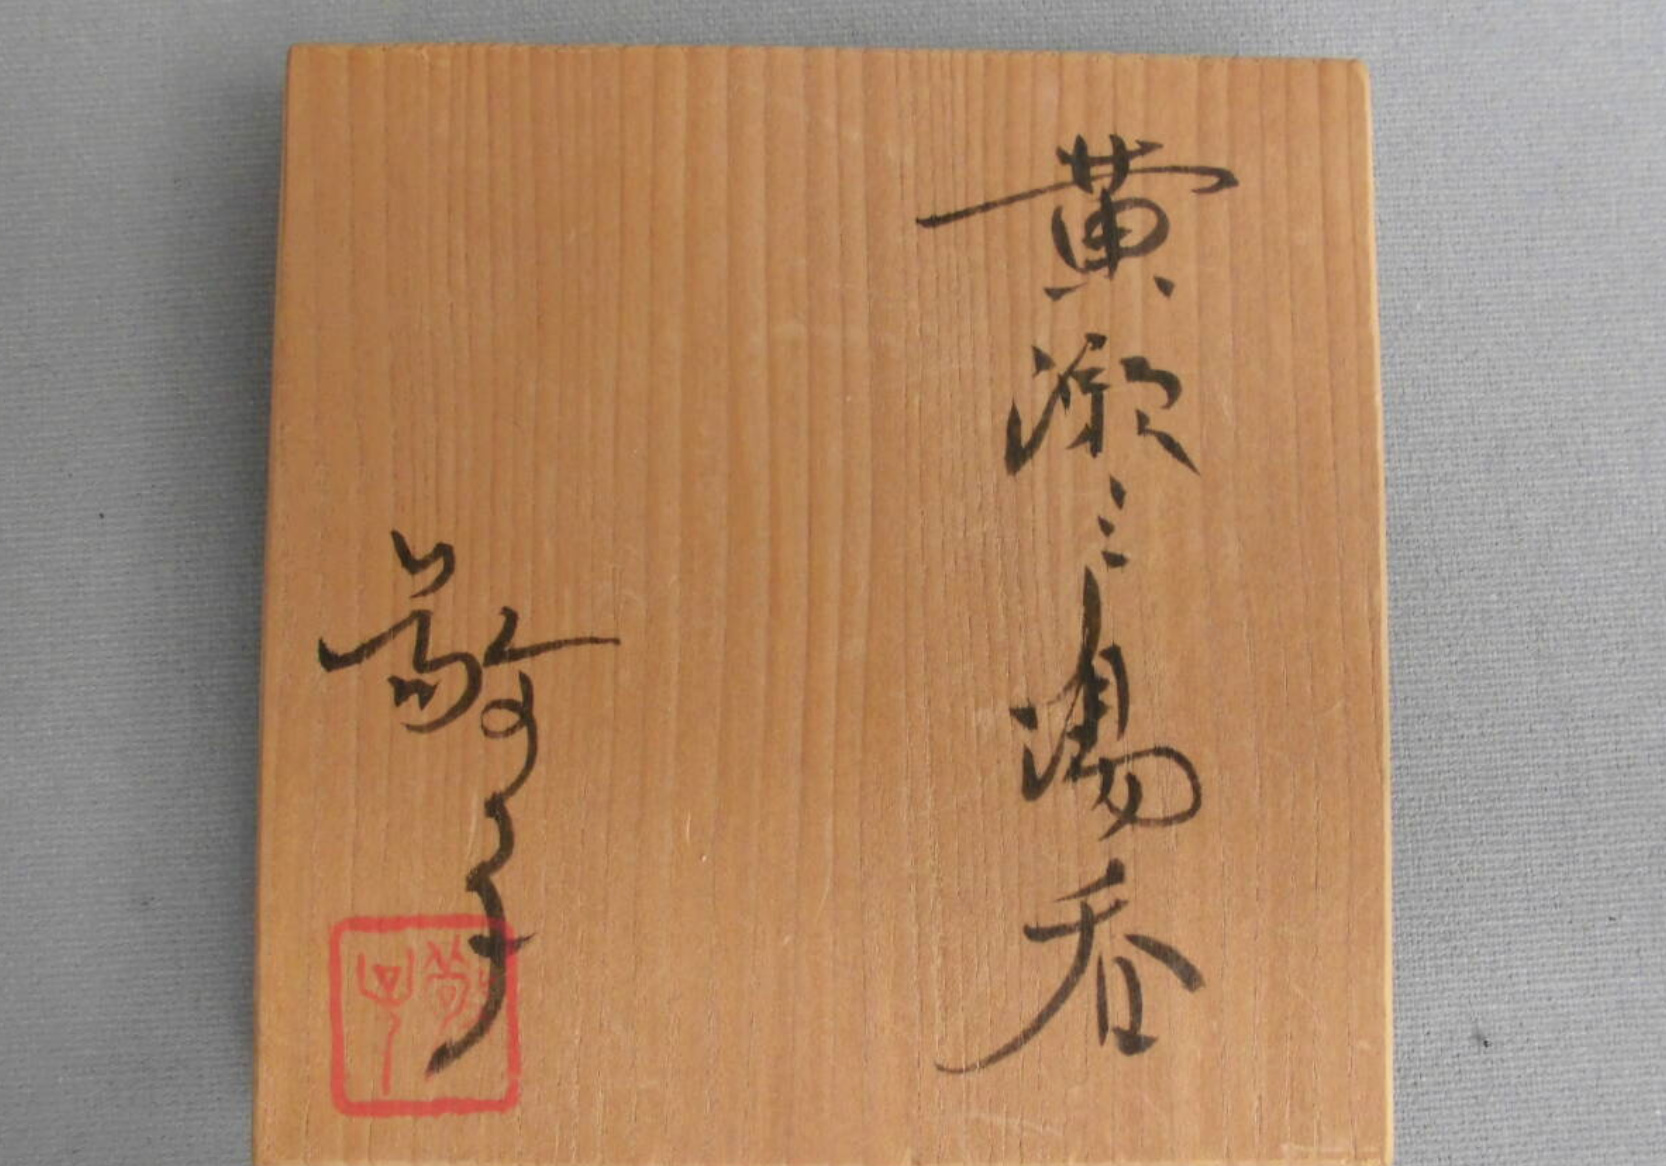 黄瀬ミ湯呑
敬子